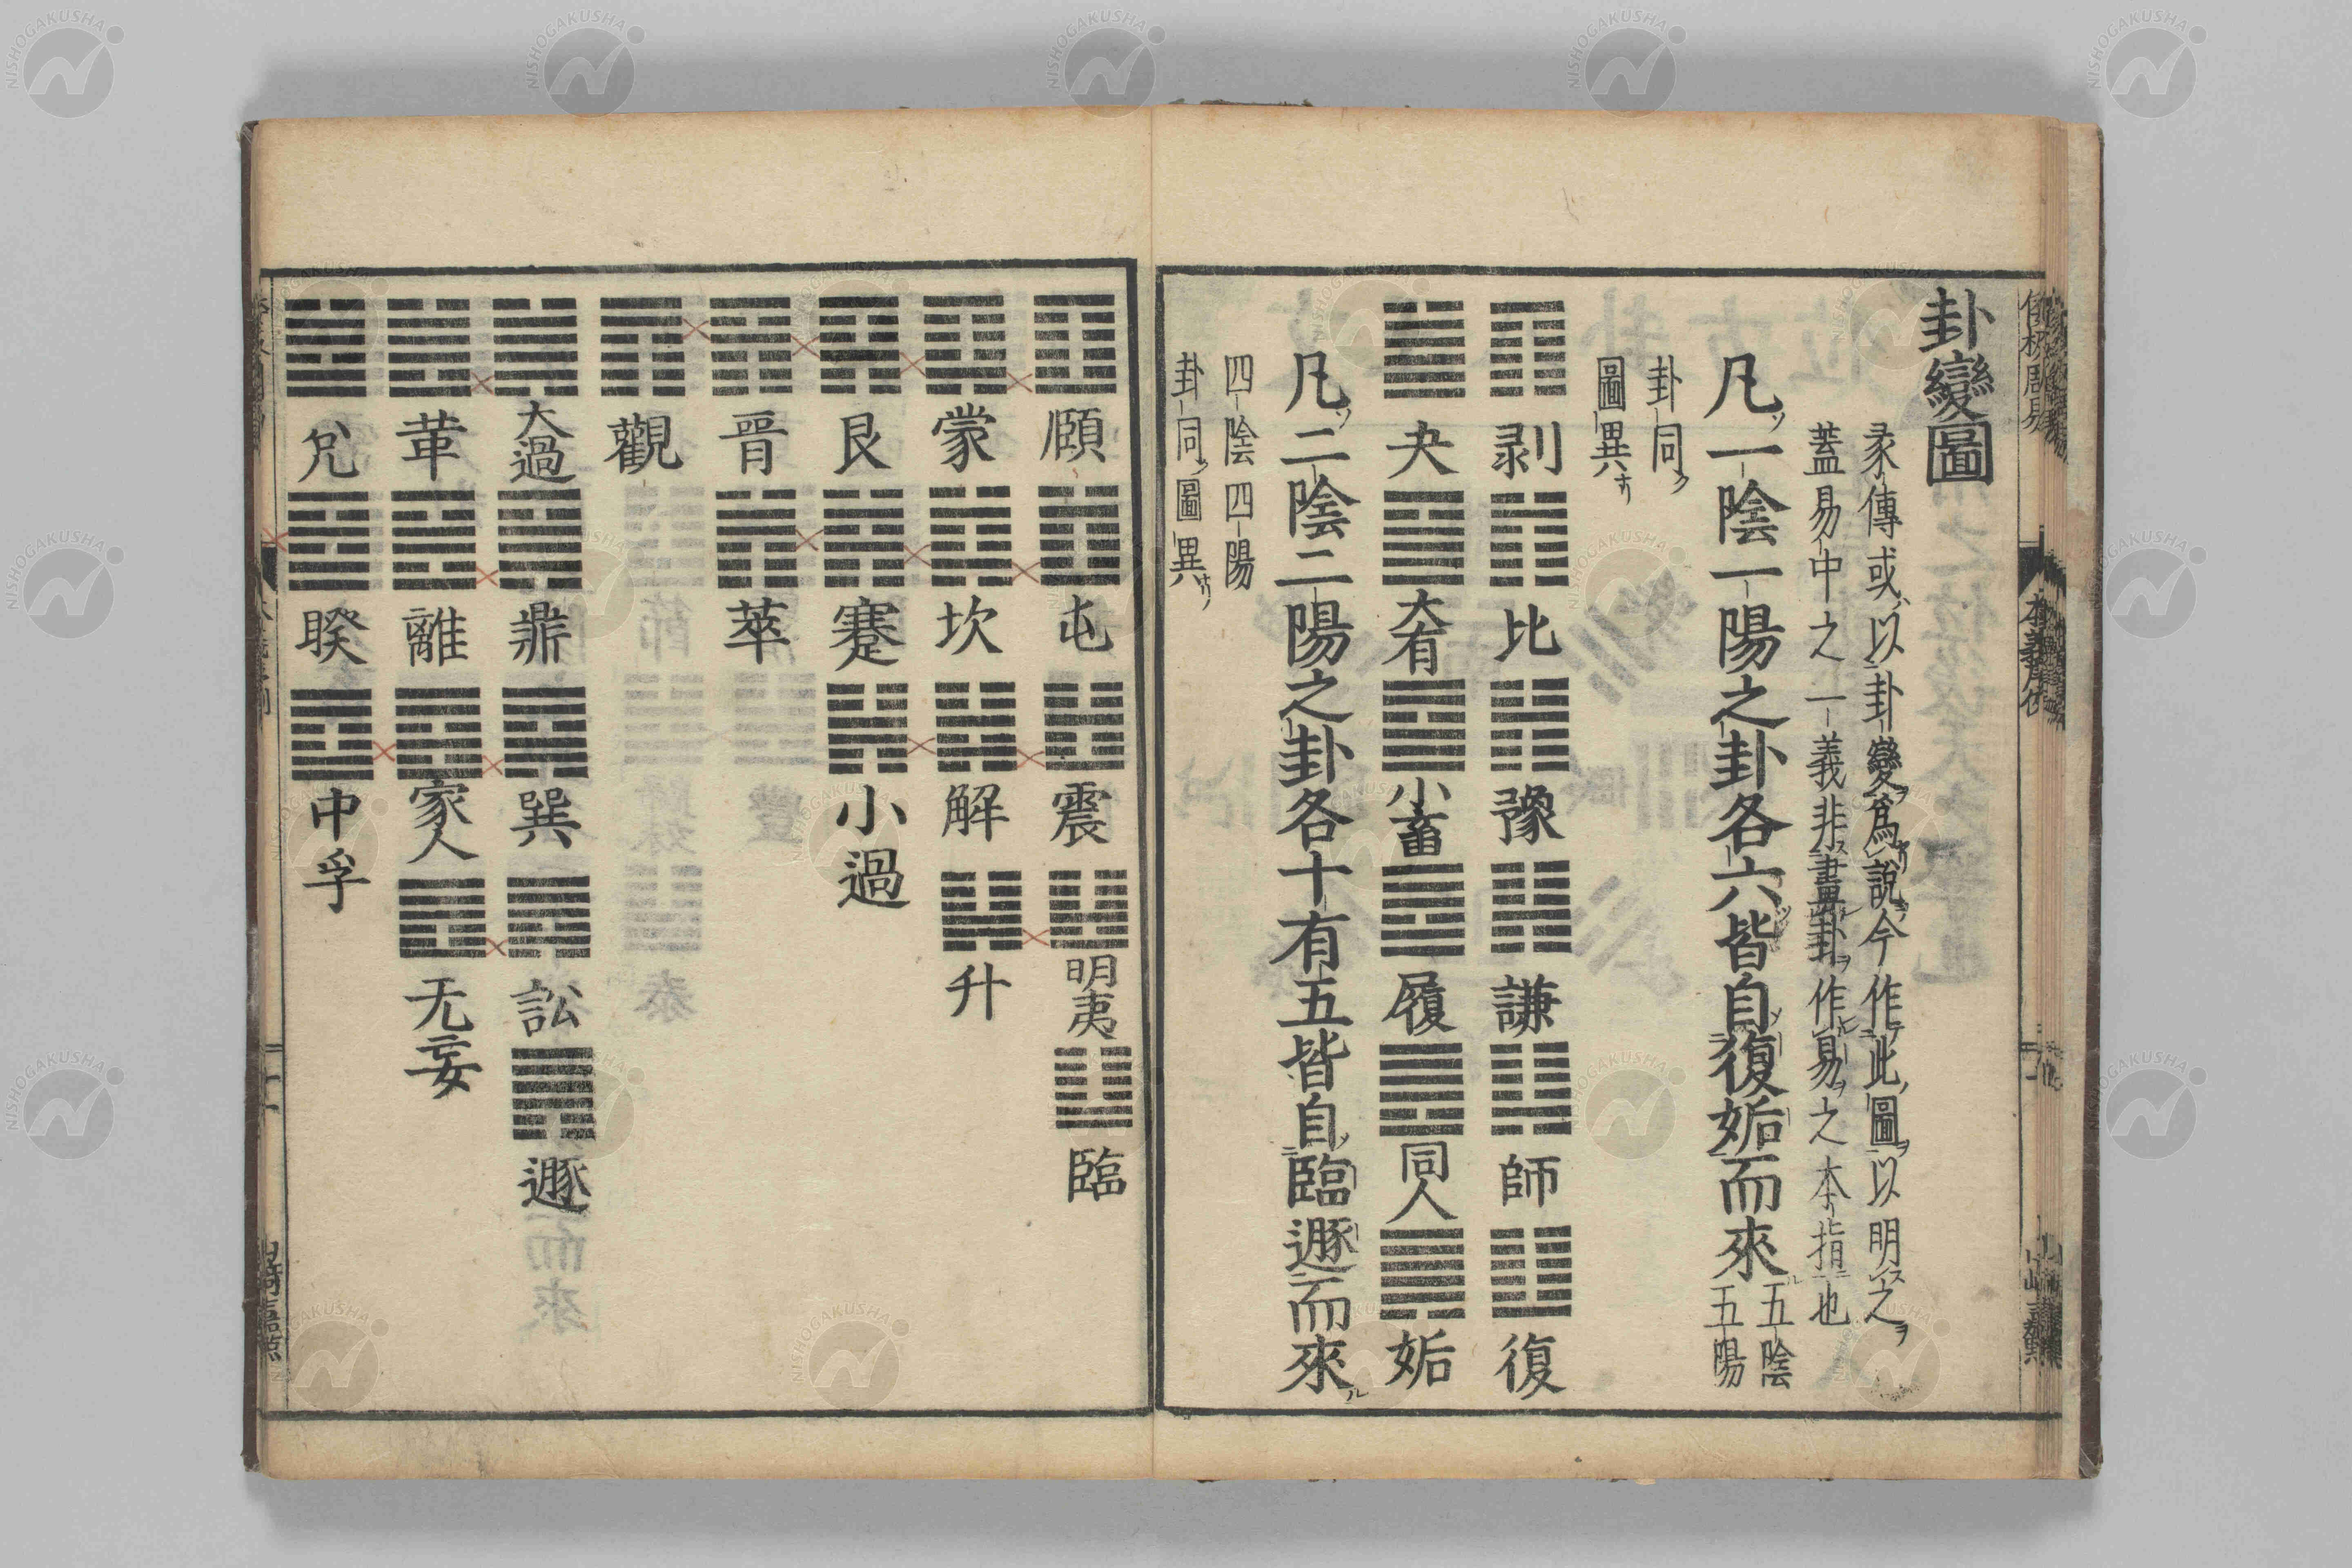 卦變圖
彖傳或以卦變爲說今作此圖以明之
蓋易中之一義非畫卦作易之本指也
凡一陰一陽之卦各六皆自復姤而來五陰五陽
卦同
圖異
剥 比 豫 謙 師 復
夬 大有 小畜 履 同人 姤
凡二陰二陽之卦各十有五皆自臨遯而來
四陰四陽
卦同圖異
頤 屯 震 明夷 臨
蒙 坎 解 升
艮 蹇 小過
晉 萃
觀
大過 鼎 巽 訟 遯
革 離 家人 无妄
兌 睽 中孚
NISHOGAKUSHA